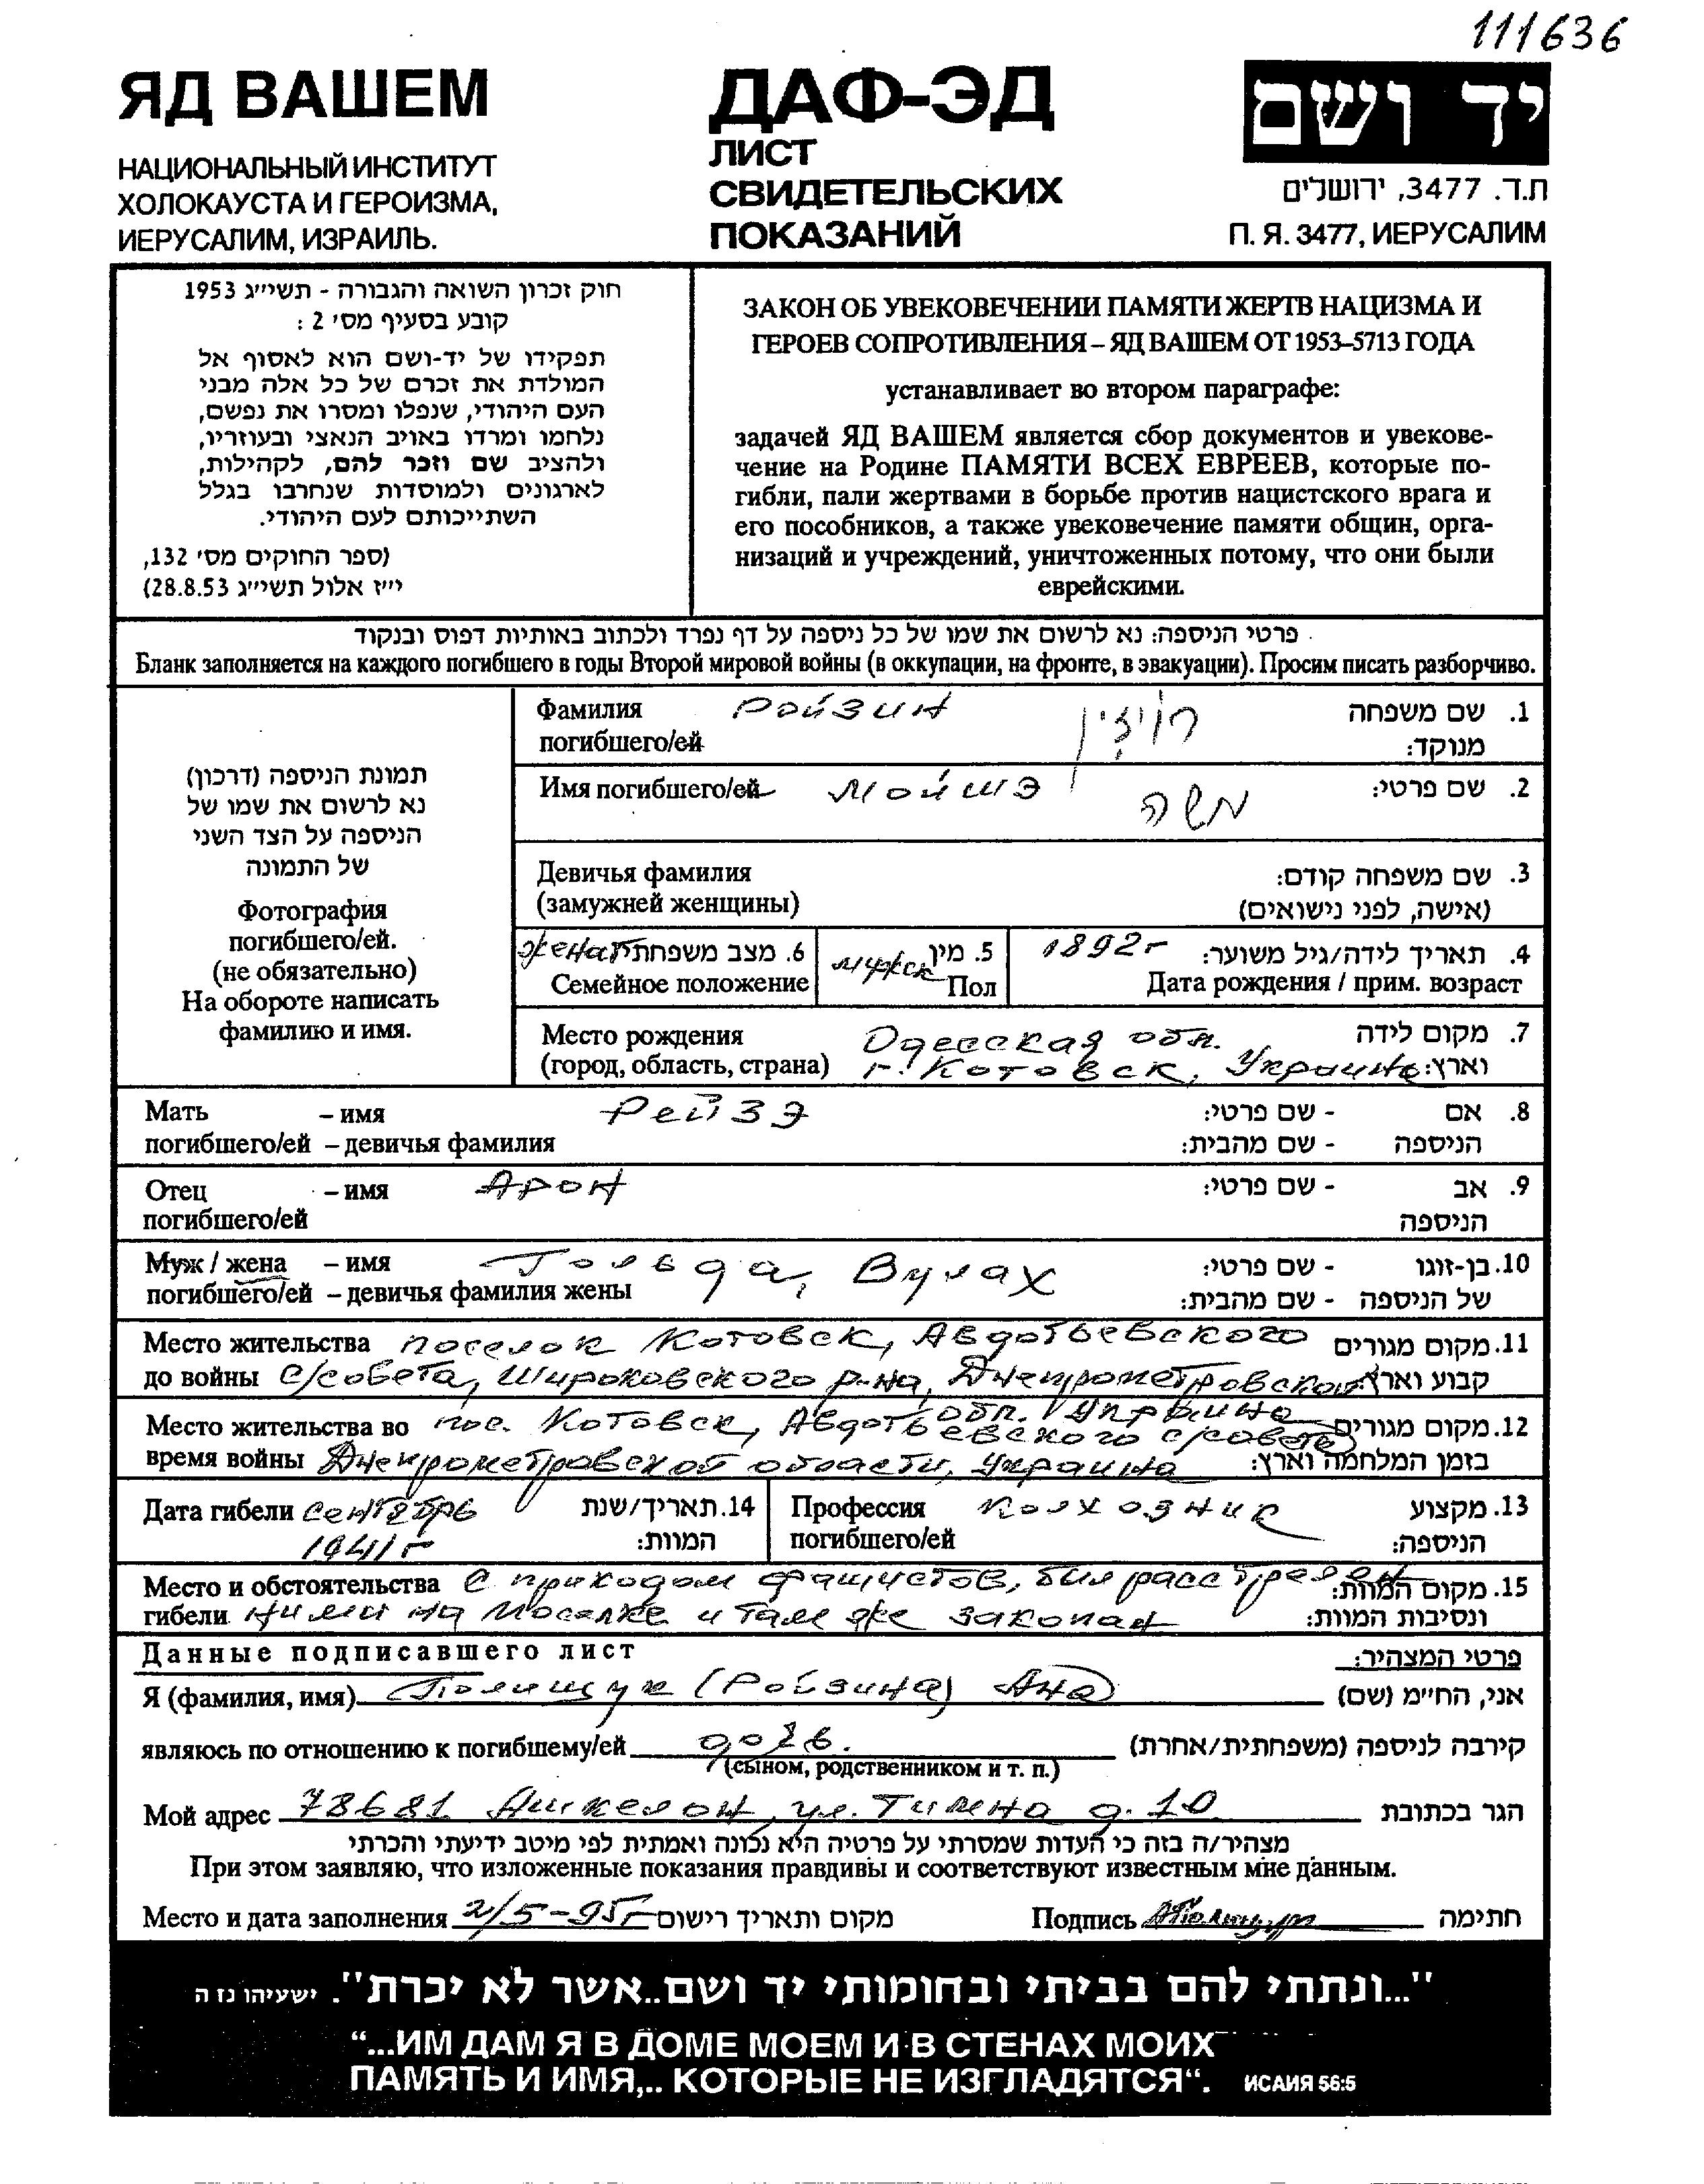 111636
ЯД ВАШЕМ
НАЦИОНАЛЬНЫЙ ИНСТИТУТ
ХОЛОКАУСТА И ГЕРОИЗМА,
ИЕРУСАЛИМ, ИЗРАИЛЬ.
ДАФ-ЭД
ЛИСТ
СВИДЕТЕЛЬСКИХ
ПОКАЗАНИЙ
יד ושם
ת.ד. 3477, ירושלים
П. Я. 3477, ИЕРУСАЛИМ
חוק זכרון השואה והגבורה - תשי״ג 1953
קובע בסעיף מס׳ 2 :
תפקידו של יד-ושם הוא לאסוף אל
המולדת את זכרם של כל אלה מבני
העם היהודי, שנפלו ומסרו את נפשם,
נלחמו ומרדו באויב הנאצי ובעוזריו,
ולהציב שם וזכר להם, לקהילות,
לארגונים ולמוסדות שנחרבו בגלל
השתייכותם לעם היהודי.
(ספר החוקים מס׳ 132,
י״ז אלול תשי״ג 28.8.53)
ЗАКОН ОБ УВЕКОВЕЧЕНИИ ПАМЯТИ ЖЕРТВ НАЦИЗМА И
ГЕРОЕВ СОПРОТИВЛЕНИЯ – ЯД ВАШЕМ ОТ 1953–5713 ГОДА
устанавливает во втором параграфе:
задачей ЯД ВАШЕМ является сбор документов и увекове-
чение на Родине ПАМЯТИ ВСЕХ ЕВРЕЕВ, которые по-
гибли, пали жертвами в борьбе против нацистского врага и
его пособников, а также увековечение памяти общин, орга-
низаций и учреждений, уничтоженных потому, что они были
еврейскими.
פרטי הניספה: נא לרשום את שמו של כל ניספה על דף נפרד ולכתוב באותיות דפוס ובנקוד
Бланк заполняется на каждого погибшего в годы Второй мировой войны (в оккупации, на фронте, в эвакуации). Просим писать разборчиво.
תמונת הניספה (דרכון)
נא לרשום את שמו של
הניספה על הצד השני
של התמונה
Фотография
погибшего/ей.
(не обязательно)
На обороте написать
фамилию и имя.
Фамилия Ройзин רויזין 1. שם משפחה
погибшего/ей מנוקד:
Имя погибшего/ей Мойшэ משה 2. שם פרטי:
Девичья фамилия 3. שם משפחה קודם:
(замужней женщины) (אישה, לפני נישואים)
женат 6. מצב משפחתי мужск 5. מין 1892г 4. תאריך לידה/גיל משוער:
Семейное положение Пол Дата рождения / прим. возраст
Место рождения Одесская обл. 7. מקום לידה
(город, область, страна) г. Котовск, Украина וארץ:
Мать – имя Рейзэ 8. אם - שם פרטי:
погибшего/ей – девичья фамилия הניספה - שם מהבית:
Отец – имя Арон 9. אב - שם פרטי:
погибшего/ей הניספה
Муж / жена – имя Гольда, Вулах 10. בן-זוגו - שם פרטי:
погибшего/ей – девичья фамилия жены של הניספה - שם מהבית:
Место жительства поселок Котовск, Авдотьевского 11. מקום מגורים
до войны с/совета, Широковского р-на, Днепропетровской קבוע וארץ:
обл. Украина
Место жительства во пос. Котовск, Авдотьевского с/совета 12. מקום מגורים
время войны Днепропетровской области, Украина בזמן המלחמה וארץ:
Дата гибели сентябрь 14. תאריך/שנת
1941г המוות:
Профессия колхозник 13. מקצוע
погибшего/ей הניספה:
Место и обстоятельства С приходом фашистов, был расстрелен 15. מקום המוות:
гибели ними на и там же закопан ונסיבות המוות:
Данные подписавшего лист פרטי המצהיר:
Я (фамилия, имя) Полищук (Ройзина) Ана אני, הח״מ (שם)
являюсь по отношению к погибшему/ей дочь. קירבה לניספה (משפחתית/אחרת)
(сыном, родственником и т. п.)
Мой адрес 78681 Ашкелон, ул. д. 10 הגר בכתובת
מצהיר/ה בזה כי העדות שמסרתי על פרטיה היא נכונה ואמתית לפי מיטב ידיעתי והכרתי
При этом заявляю, что изложенные показания правдивы и соответствуют известным мне данным.
Место и дата заполнения 2/5-95г מקום ותאריך רישום Подпись АПолищук חתימה
"...ונתתי להם בביתי ובחומותי יד ושם..אשר לא יכרת". ישעיהו נז ה
“...ИМ ДАМ Я В ДОМЕ МОЕМ И В СТЕНАХ МОИХ
ПАМЯТЬ И ИМЯ,.. КОТОРЫЕ НЕ ИЗГЛАДЯТСЯ“. ИСАИЯ 56:5